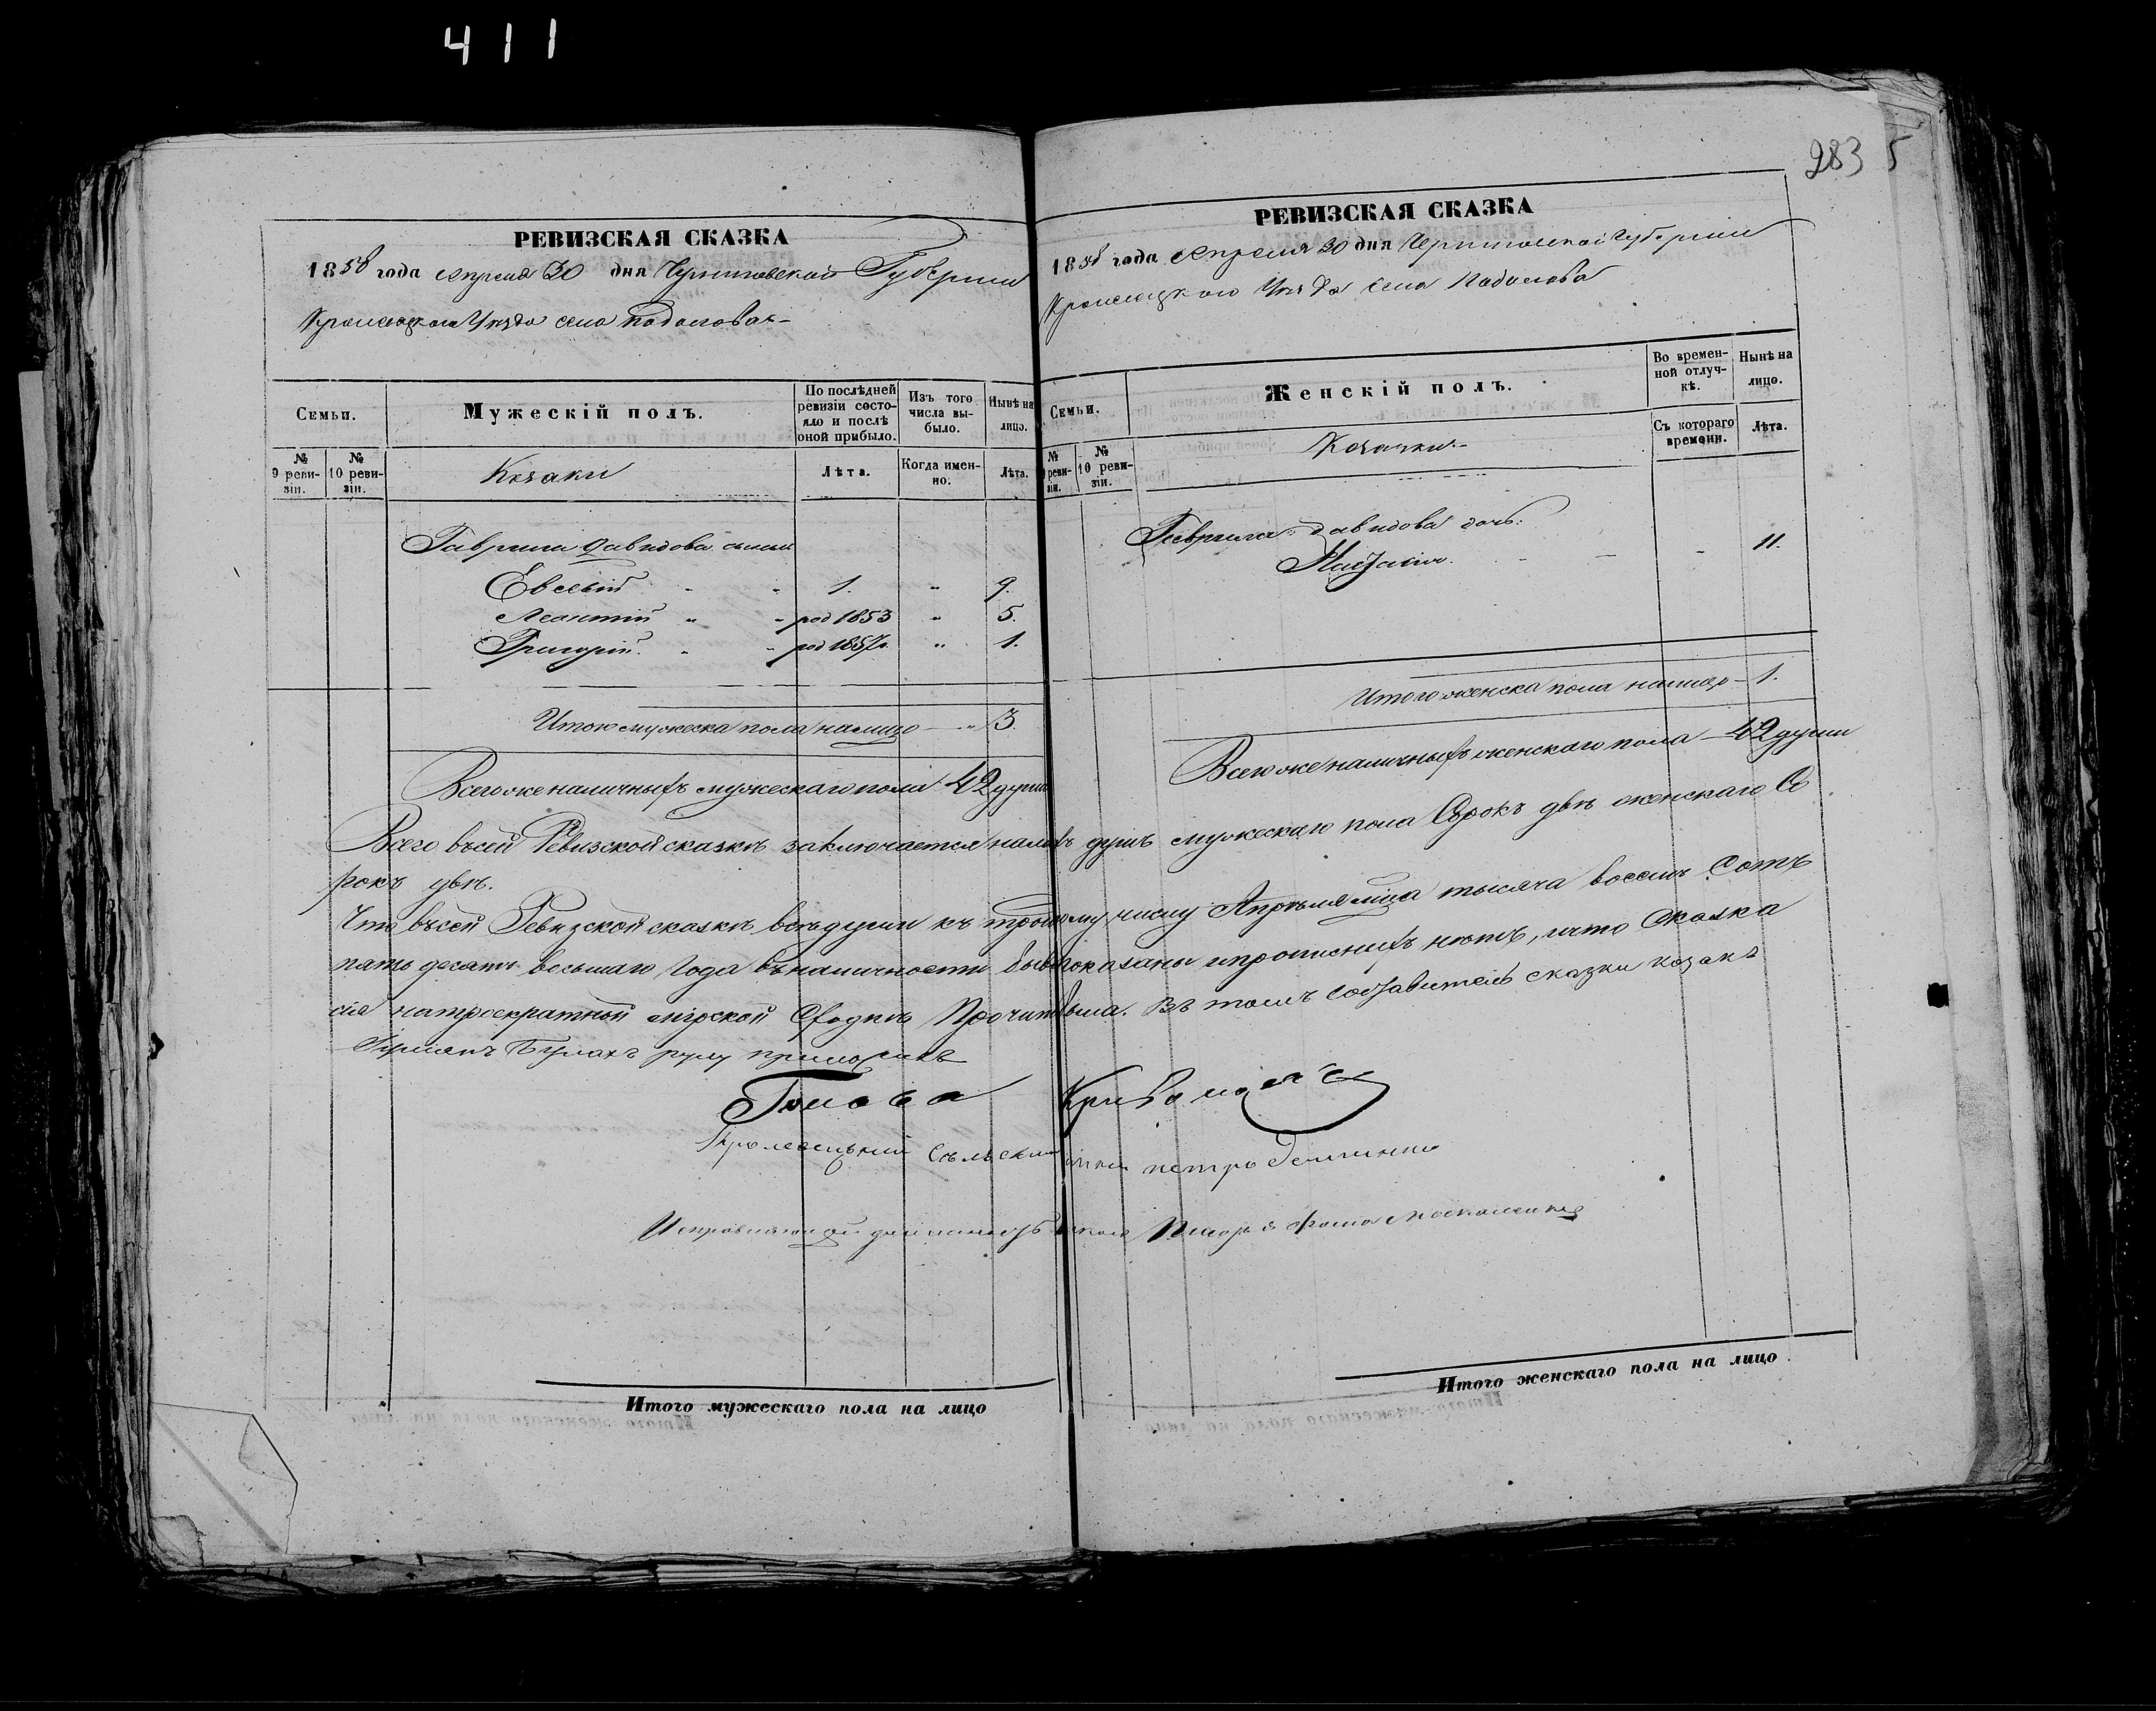 411
283 5
РЕВИЗСКАЯ СКАЗКА
1858 года Апреля 30 дня Черниговской Губернии
Кролевецкого Уезда села Подолова
Семьи.
Мужескій полъ.
По послѣдней ревизіи состояло и послѣ оной прибыло.
Изъ того числа выбыло.
Нынѣ на лицо.
№ 9 ревизіи.
№ 10 ревизіи.
Козаки
Лѣта.
Когда именно.
Лѣта.
Гаврила Давидова сыны
Евсевій 1. " 9.
Леонтій " " род 1853 " 5.
Григорій. " " род 1857г. " 1.
Итого мужеска пола налицо — " 3.
Всего же наличныхъ мужескаго пола 42 души
РЕВИЗСКАЯ СКАЗКА
1858 года Апреля 30 дня Черниговской Губернии
Кролевецкого Уезда села Подолова
Семьи.
Женскій полъ.
Во временной отлучкѣ.
Нынѣ на лицо.
№ 9 ревизіи.
№ 10 ревизіи.
Козачки
Съ котораго времени.
Лѣта.
Гаврила Давидова дочь:
Настасія. 11.
Итого женска пола налицо — 1.
Всего же наличныхъ женскаго пола — 42 души
Всего въ сей Ревизской сказкѣ заключается налицо душъ мужескаго пола Сорокъ двѣ женскаго Со
рокъ двѣ.
Что въ сей Ревизской сказкѣ всѣ души къ числу Апрѣля мца тысяча восемь Сотъ
пять десятъ восьмаго Года въ наличности показаны и прописныхъ нѣтъ, и что Сказка
сія на троекратной мірской Сходкѣ Прочит была. Въ томъ составитель сказки козакъ
руку приложилъ
Голова
Кролевецкий Сельский Петро
Исправляющий Писаря Фома Москаленко
Итого мужескаго пола на лицо
Итого женскаго пола на лицо